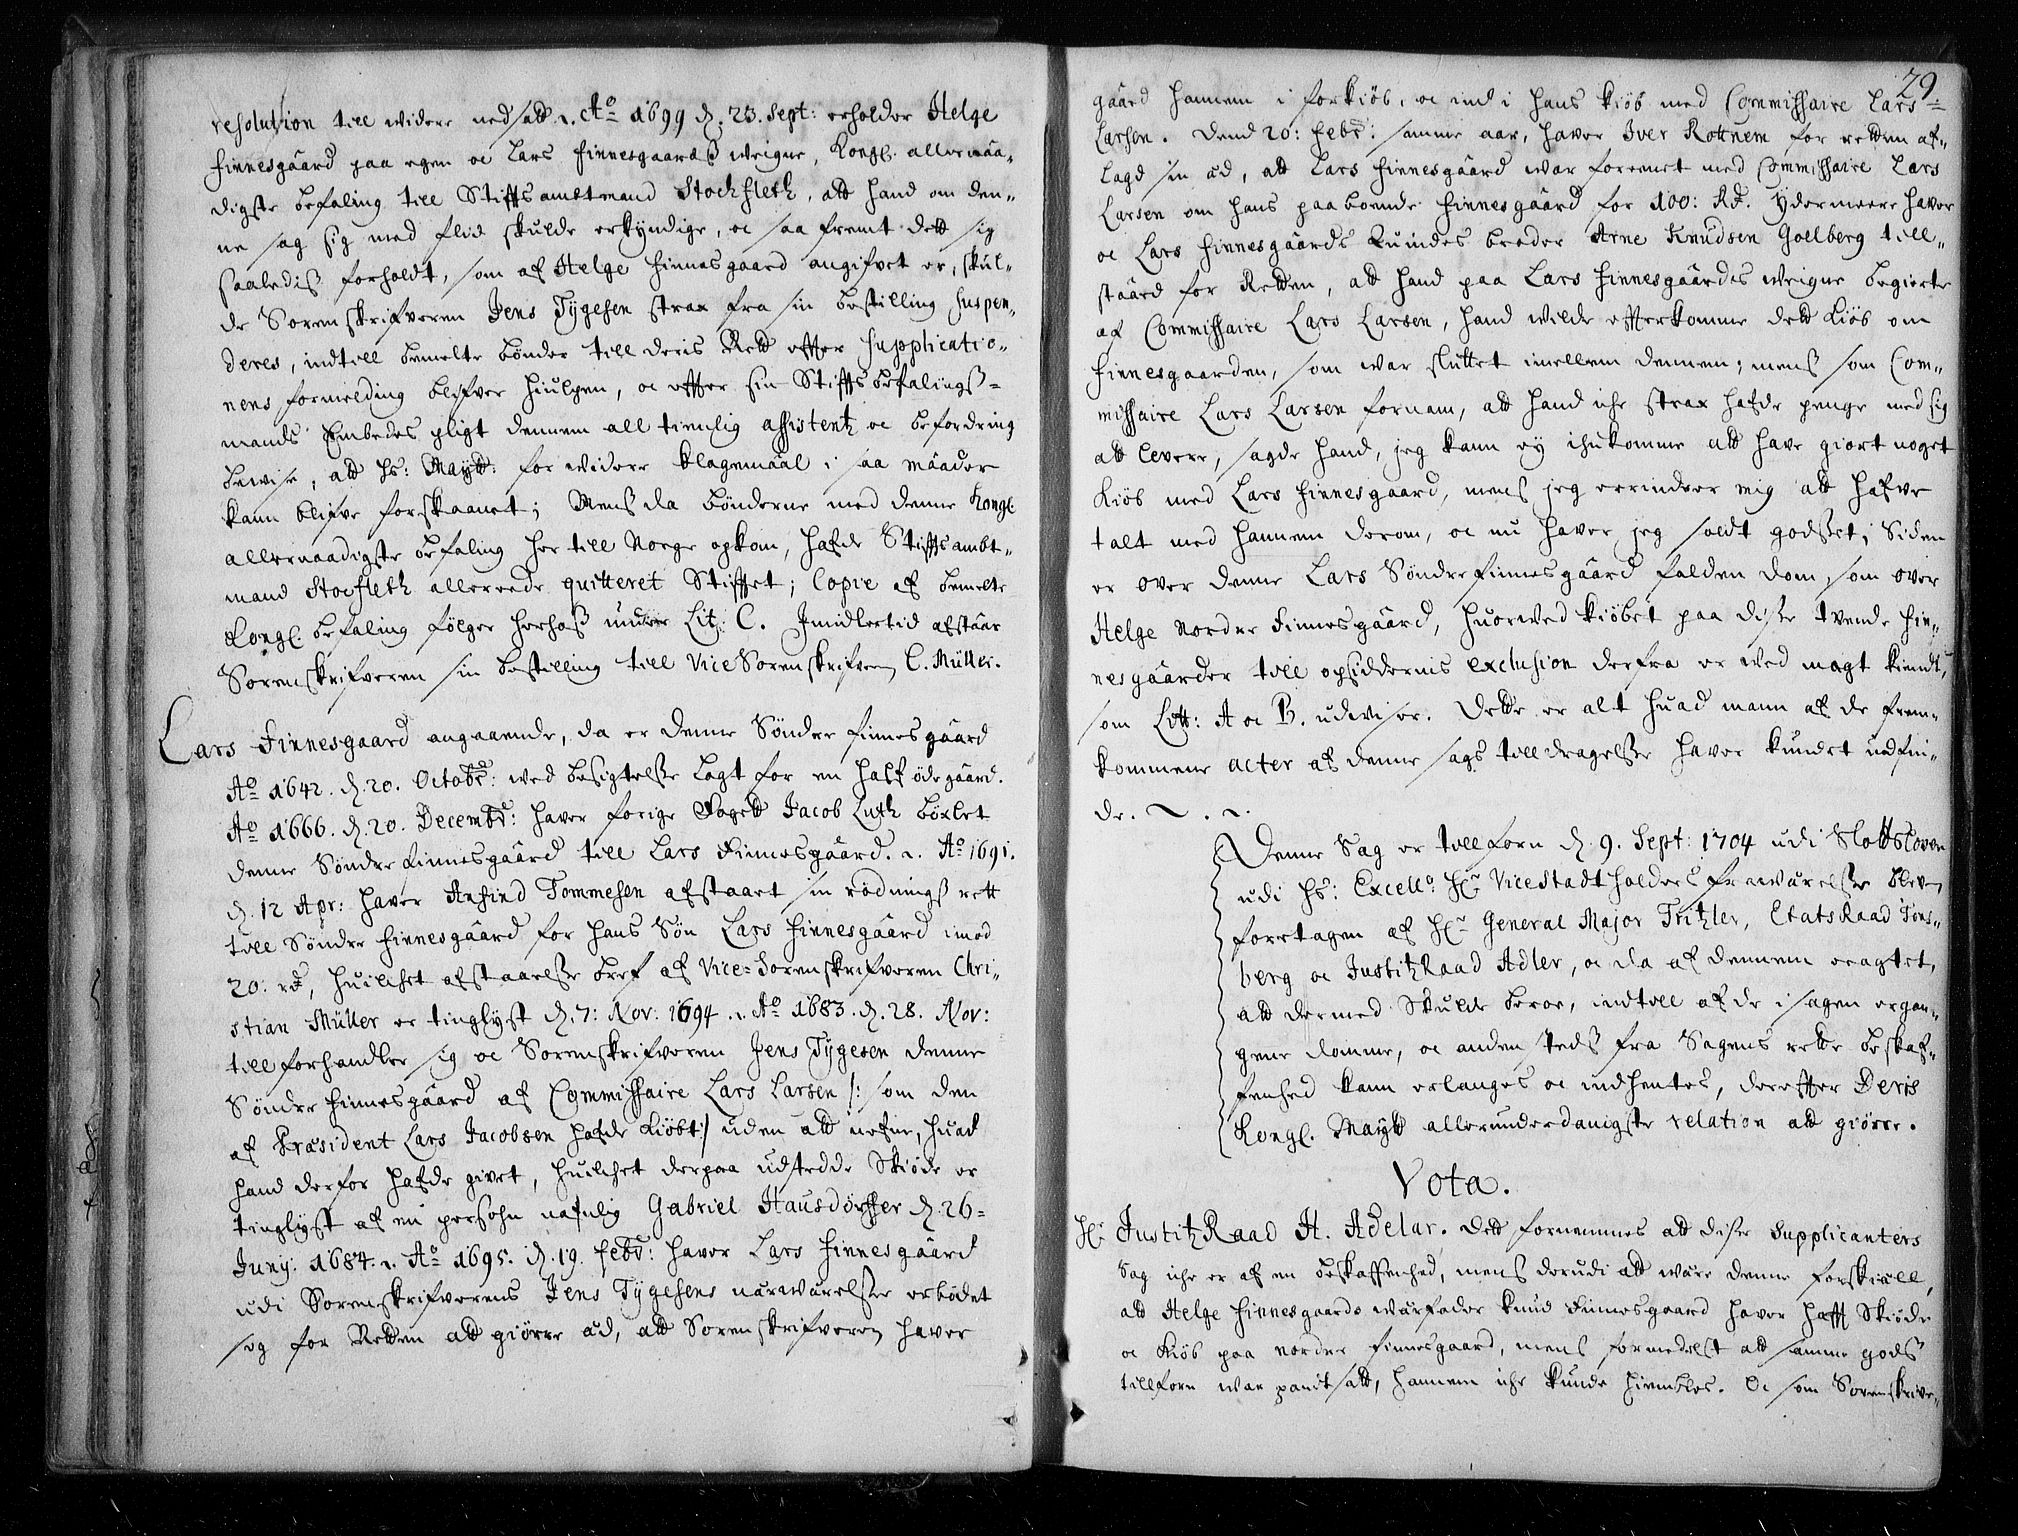 resolution till widere nedsatt. Ao 1699 d. 23. Sept: erholder Helge
Finnesgaard paa egen oc Lars Finnesgaardß weigne, Kongl. allernaa-
digste befaling till Stiftsambtmand Stochfleth, att hand om den-
ne sag sig med flid skulde erkyndige, oc saa fremt dett sig
saaledis forholdt, som af Helge Finnesgaard angifvet er, skul-
de Sorenskrifveren Jens Tygesen strax fra sin bestilling suspen-
deres, indtill bemelte bønder till deris Rett effter supplicatio-
nens formelding blifver hiulpen, oc effter sin Stiftsbefalingß-
mands Embedes pligt dennem all tienlig assistentz oc befordring
bewise, att Hs: Maytt: for widere klagemaal i saa maader
kann blifve forskaanet; Mens da bønderne med denne Kongl.
allernaadigste befaling her till Norge opkom, hafde Stiftsambt-
mand Stocfleth allerede quitteret Stiftet; Copie af bemelte
Kongl. befaling følger herhoß under Lit: C. Imidlertid afstaar
Sorenskrifveren sin bestilling till Vice Sorenskrifveren C. Müller.
Lars Finnesgaard angaaende, da er denne Søndre Finnesgaard
Ao 1642. d. 20. Octobr: wed besigtelse lagt for en half ødegaard.
Ao 1666. d. 20. Decembr: haver forige Fogett Jacob Luth bøxlet
denne Søndre Finnesgaard till Lars Finnesgaard. Ao 1691.
d. 12 Apr: haver Anfind Tommesen afstaaet sin rødningß rett
till Søndre Finnesgaard for hans Søn Lars Finnesgaard imod
20. rd, huilchet afstaaelse bref af Vice-Sorenskrifveren Chri-
stian Müller er tinglyst d. 7: Nov: 1694. Ao 1683. d. 28. Nov:
till forhandler sig oc Sorenskrifveren Jens Tygesen denne
Søndre Finnesgaard af Commissaire Lars Larsen /: som den
af Præsident Lars Jacobsen hafde kiøbt :/ uden att nefne, huad
hand derfor hafde givet, huilchet derpaa udstedde Skiøde er
tinglyst af en persohn nafnlig Gabriel Hausdörffer d. 26-
Juny: 1684. Ao 1695. d. 19. Febr: haver Lars Finnesgaard
udi Sorenskrifverens Jens Tygesens nærwærelse erbødet
sig for Retten att giørre æd, att Sorenskrifveren haver
29
gaaed hannem i forkiøb, oc ind i hans kiøb med Commissaire Lars
Larsen. Dend 20: Febr: samme aar, haver Iver Rottnem for retten af-
lagd sin æd, att Lars Finnesgaard war foreenet med Commissaire Lars
Larsen om hans paaboende Finnesgaard for 100: Rd. Ydermeere haver
oc Lars Finnesgaards Quindes broder Arne Knudsen Golberg till-
staaed for Retten, att hand paa Lars Finnesgaardes weigne begierte
af Commissaire Lars Larsen, hand wilde effterkomme dett kiøb om
Finnesgaarden, som war sluttet imellem dennem; mens som Com-
missaire Lars Larsen fornam, att hand iche strax hafde penge med sig
att levere, sagde hand, jeg kann ey ihukomme att have giort noget
kiøb med Lars Finnesgaard, mens jeg erindrer mig att hafve
talt med hannem derom, oc nu haver jeg soldt godset; Siden
er over denne Lars Søndre Finnesgaard falden dom, som over
Helge Nordre Finnesgaard, huorwed kiøbet paa disse tvende Fin-
nesgaarder till opsiddernis exclusion derfra er wed magt kiendt,
som Litt: A oc B. udviser. Dette er alt huad mann af de frem-
kommene acter af denne sags tilldragelse haver kundet udfin-
de.
Denne Sag er tillforn d. 9. Sept: 1704 udi Slottsloven
udi Hs: Excell: Hr ViceStadtholders fraværelse bleven
foretagen af Hr General Major Tritzler, EtatsRaad Tons-
berg oc JustitzRaad Adler, oc da af dennem eragtet,
att dermed skulde beroe, indtill af de i sagen ergan-
gene domme, oc anden steds fra Sagens rette beskaf-
fenhed kann erlanges oc indhentes, dereffter Deris
Kongl. Maytt allerunderdanigste relation att giørre.
Vota.
Hr JustitzRaad H. Adelar. Dett fornemmes att disse Supplicanters
Sag iche er af en beskaffenhed, mens derudi att wære denne forskiell,
att Helge Finnesgaards wærfader Knud Finnesgaard haver hafft Skiøde
oc kiøb paa Nordre Finnesgaard, mens formedelst att samme gods
tillforn war pantsatt, hannem iche kunde hiembles. Oc som Sorenskrive-